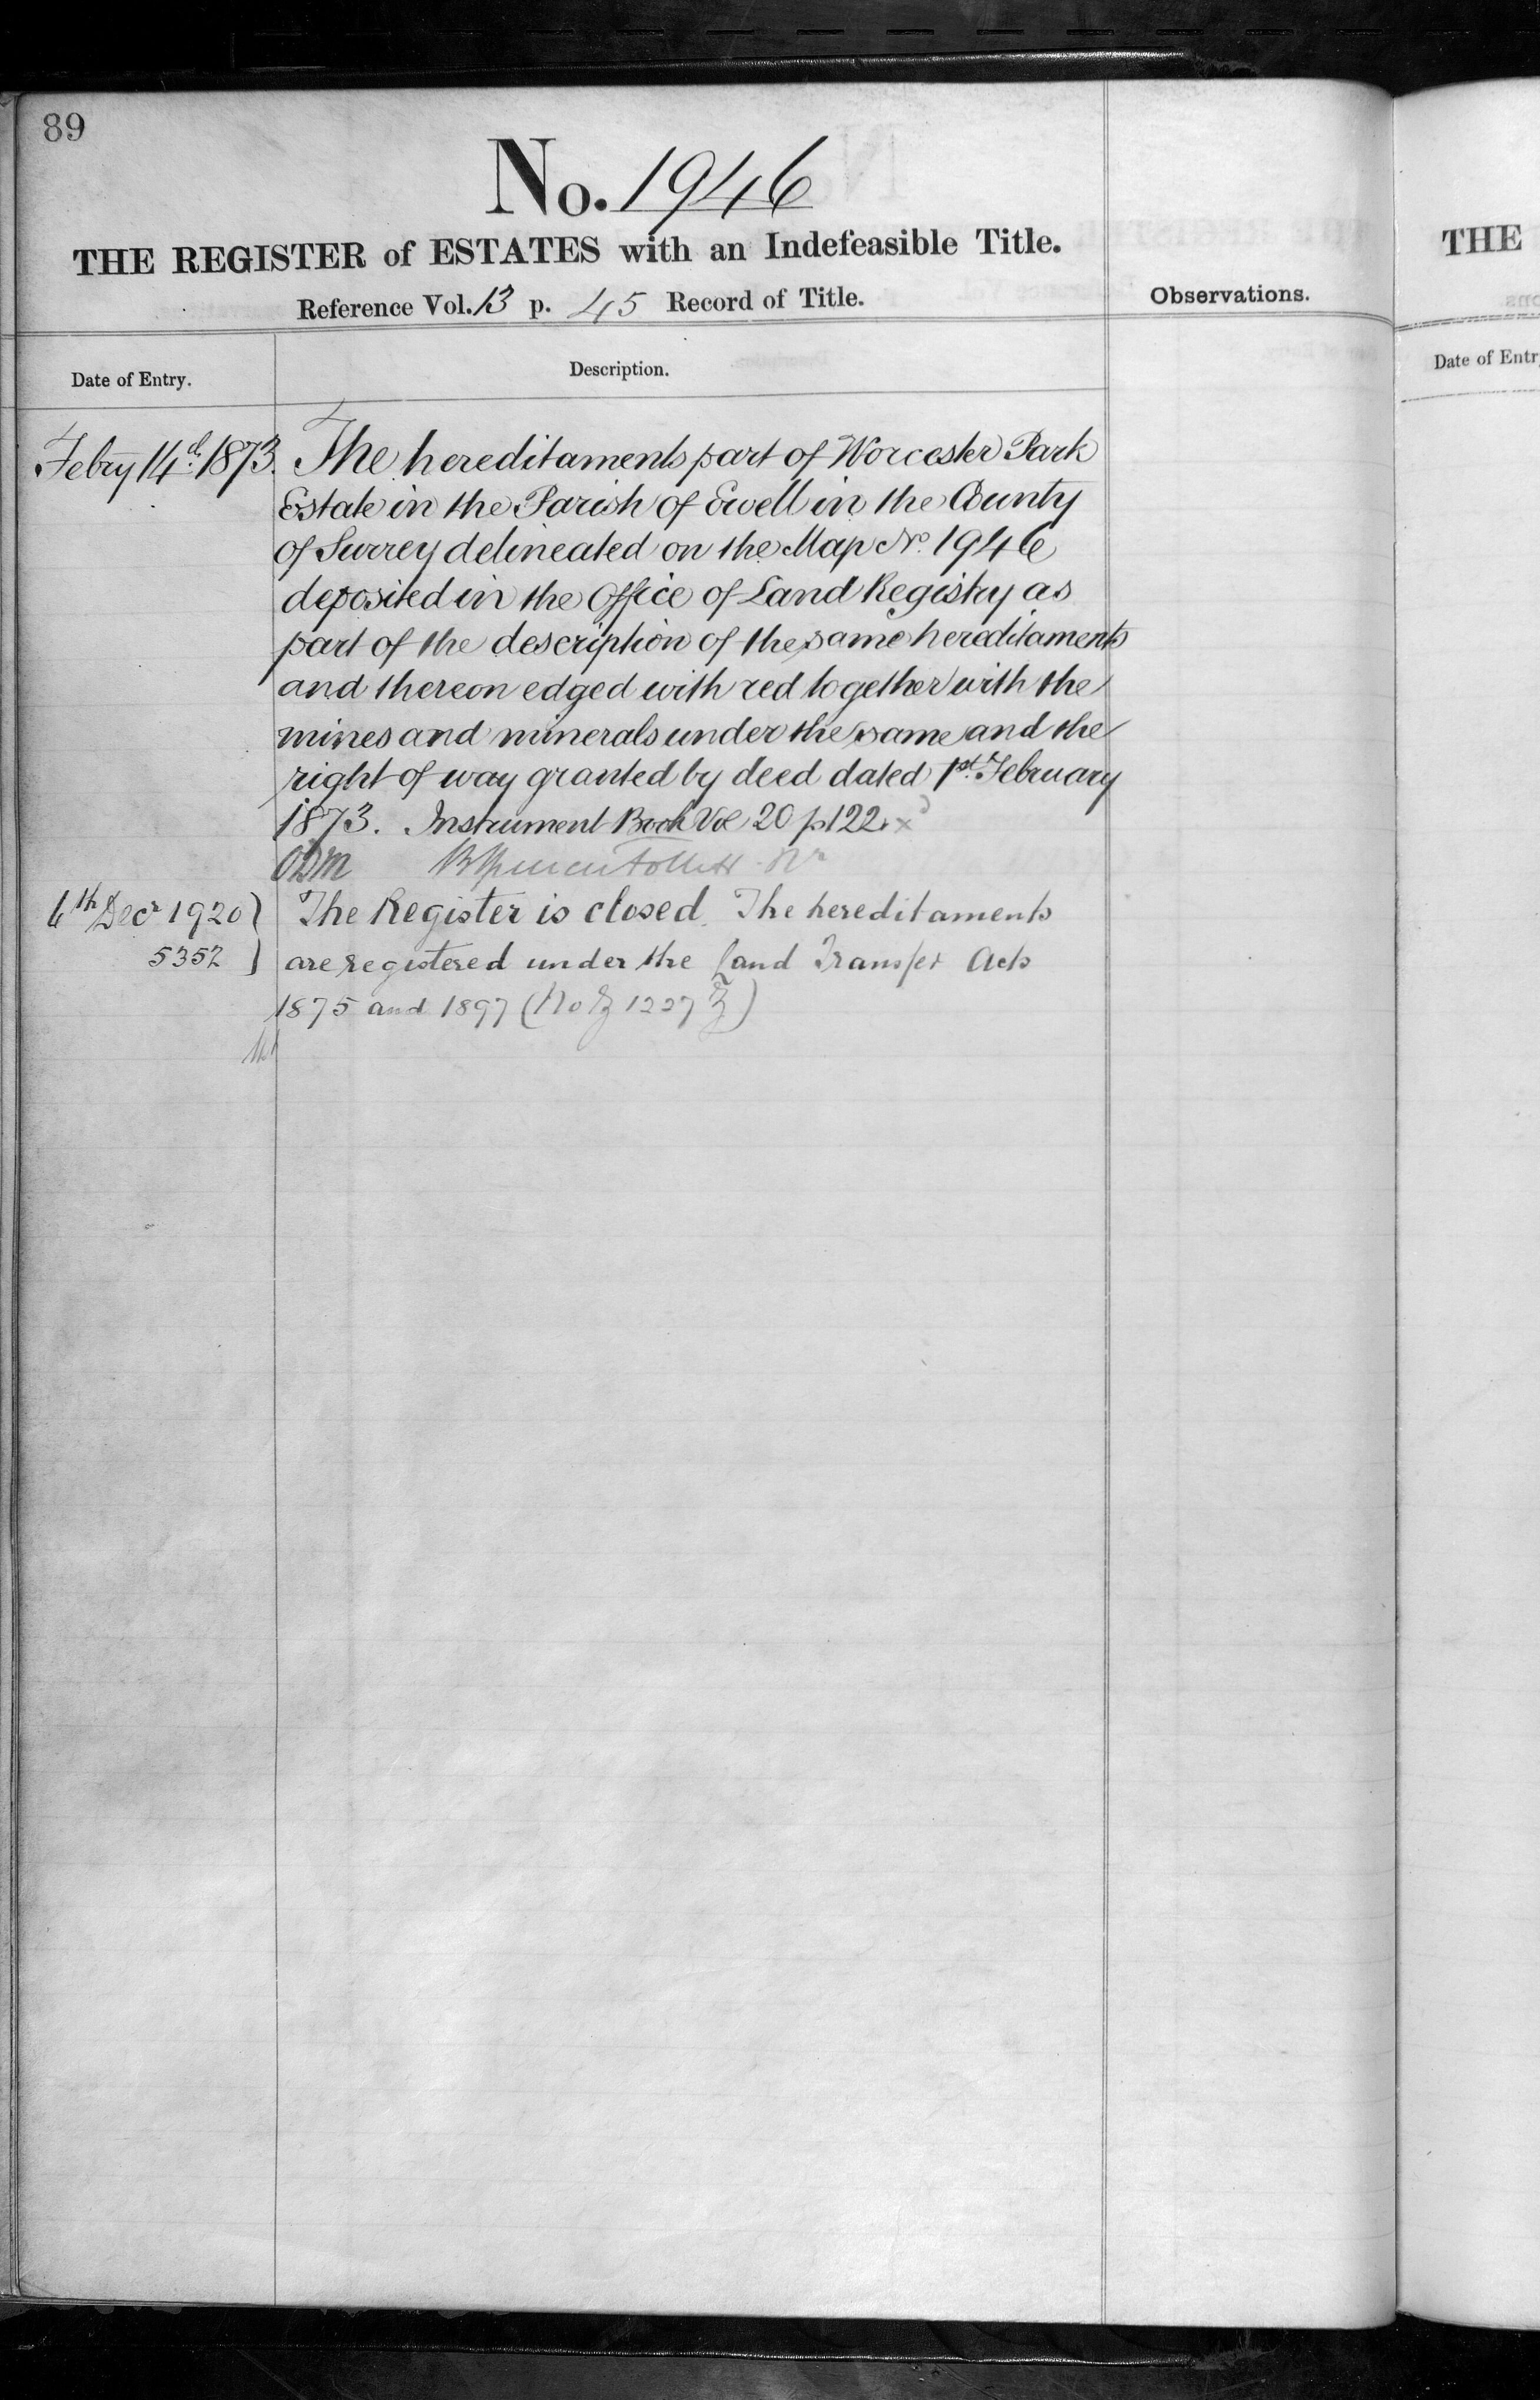 89
No. 1946
THE REGISTER of ESTATES with an Indefeasible Title.
Reference Vol. 13 p. 45 Record of Title.
Observations.
Date of Entry.
Description.
Febry 14th 1873. The hereditaments part of Worcester Park
Estate in the Parish of Ewell in the County
of Surrey delineated on the Map No. 1946
deposited in the Office of Land Registry as
part of the description of the same hereditaments
and thereon edged with red together with the
mines and minerals under the same and the
right of way granted by deed dated 1st February
1873. Instrument Book Vol 20 p 122. x
ODM
6th Decr 1920 } The Register is closed. The hereditaments
5352 } are registered under the Land Transfer Acts
1875 and 1897
THE
Date of Entr